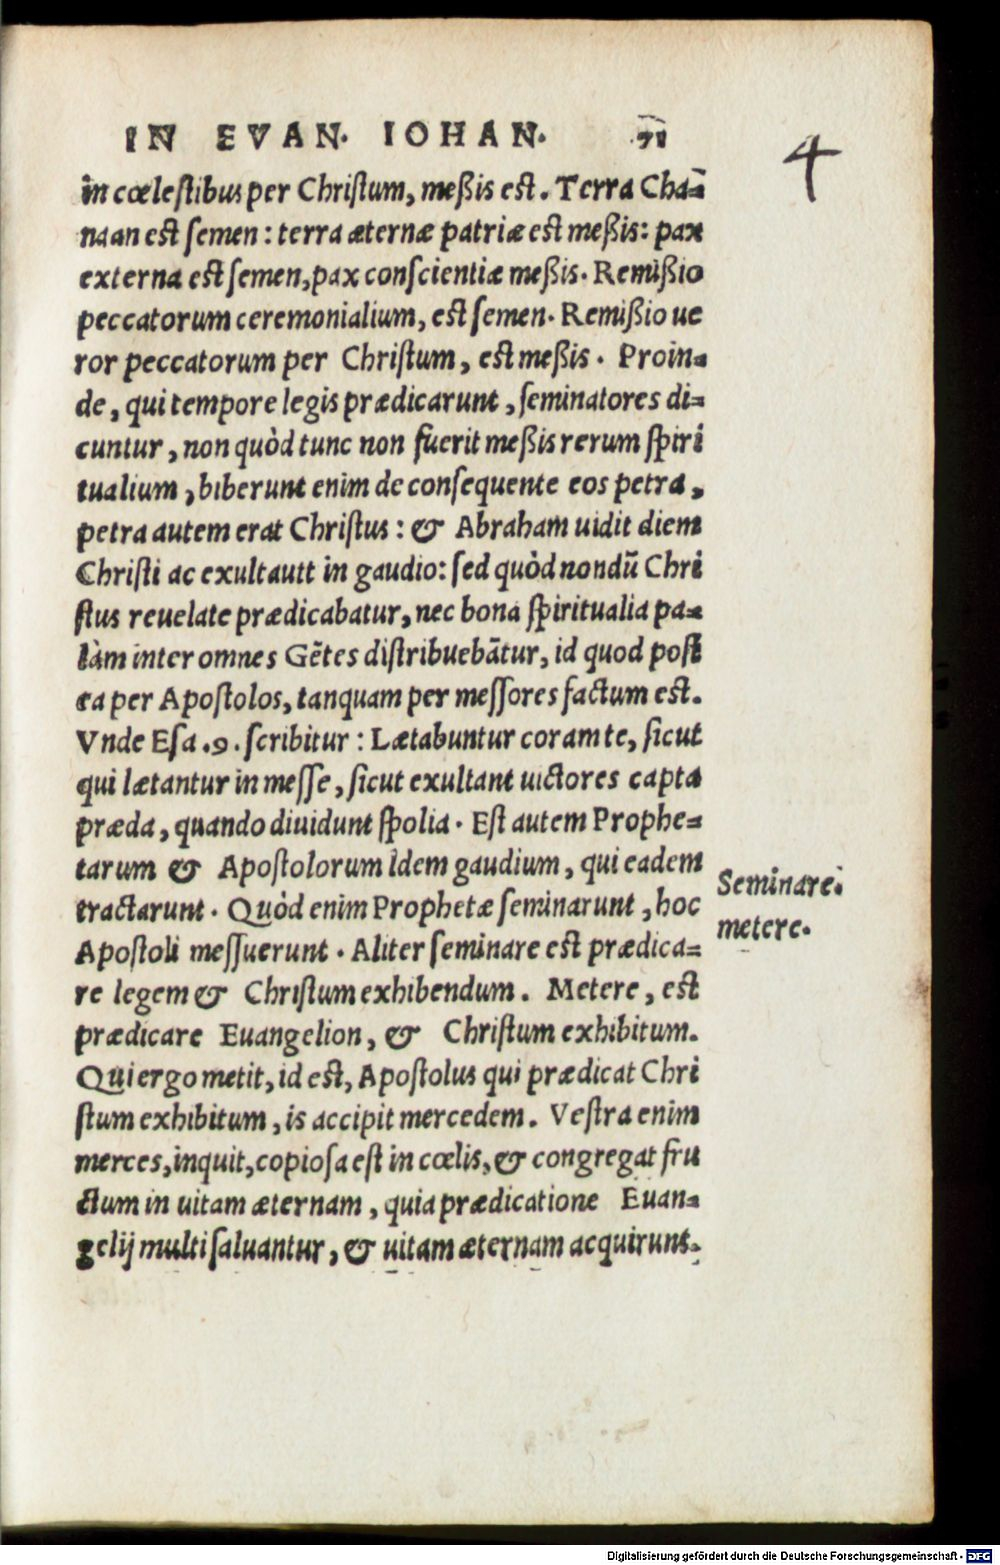 IN EVAN. IOHAN. 71
4
in cœlestibus per Christum, meßis est. Terra Cha=
naan est semen: terra æternæ patriæ est meßis: pax
externa est semen, pax conscientiæ meßis. Remißio
peccatorum ceremonialium, est semen. Remißio ue
ror peccatorum per Christum, est meßis. Proin=
de, qui tempore legis prædicarunt, seminatores di=
cuntur, non quòd tunc non fuerit meßis rerum spiri
tualium, biberunt enim de consequente eos petra,
petra autem erat Christus: & Abraham uidit diem
Christi ac exultautt in gaudio: sed quòd nondū Chri
stus reuelate prædicabatur, nec bona spiritualia pa=
làm inter omnes Gētes distribuebātur, id quod post
ea per Apostolos, tanquam per messores factum est.
Vnde Esa .9. scribitur: Lætabuntur coram te, sicut
qui lætantur in messe, sicut exultant uictores capta
præda, quando diuidunt spolia. Est autem Prophe=
tarum & Apostolorum idem gaudium, qui eadem
tractarunt. Quòd enim Prophetæ seminarunt, hoc
Apostoli messuerunt. Aliter seminare est prædica=
re legem & Christum exhibendum. Metere, est
prædicare Euangelion, & Christum exhibitum.
Qui ergo metit, id est, Apostolus qui prædicat Chri
stum exhibitum, is accipit mercedem. Vestra enim
merces, inquit, copiosa est in cœlis, & congregat fru
ctum in uitam æternam, quia prædicatione Euan=
gelij multi saluantur, & uitam æternam acquirunt.
Seminare.
metere.
Digitalisierung gefördert durch die Deutsche Forschungsgemeinschaft - DFG